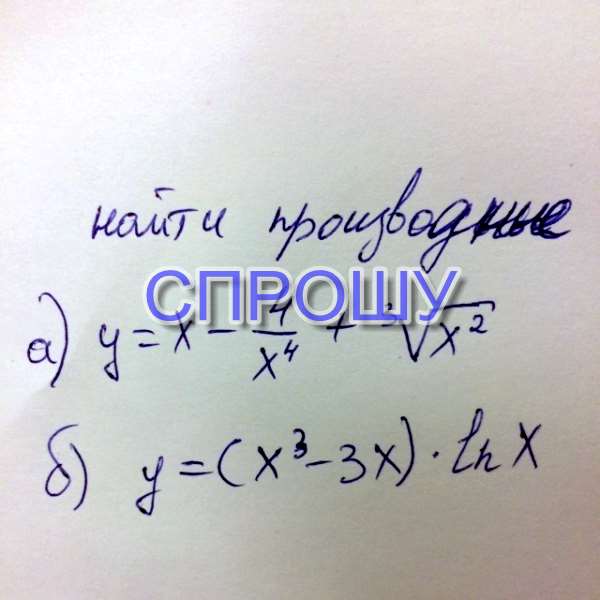 найти производные
СПРОШУ
а) y = x - 4/x⁴ + ³√x²
б) y = (x³ - 3x) · ln x